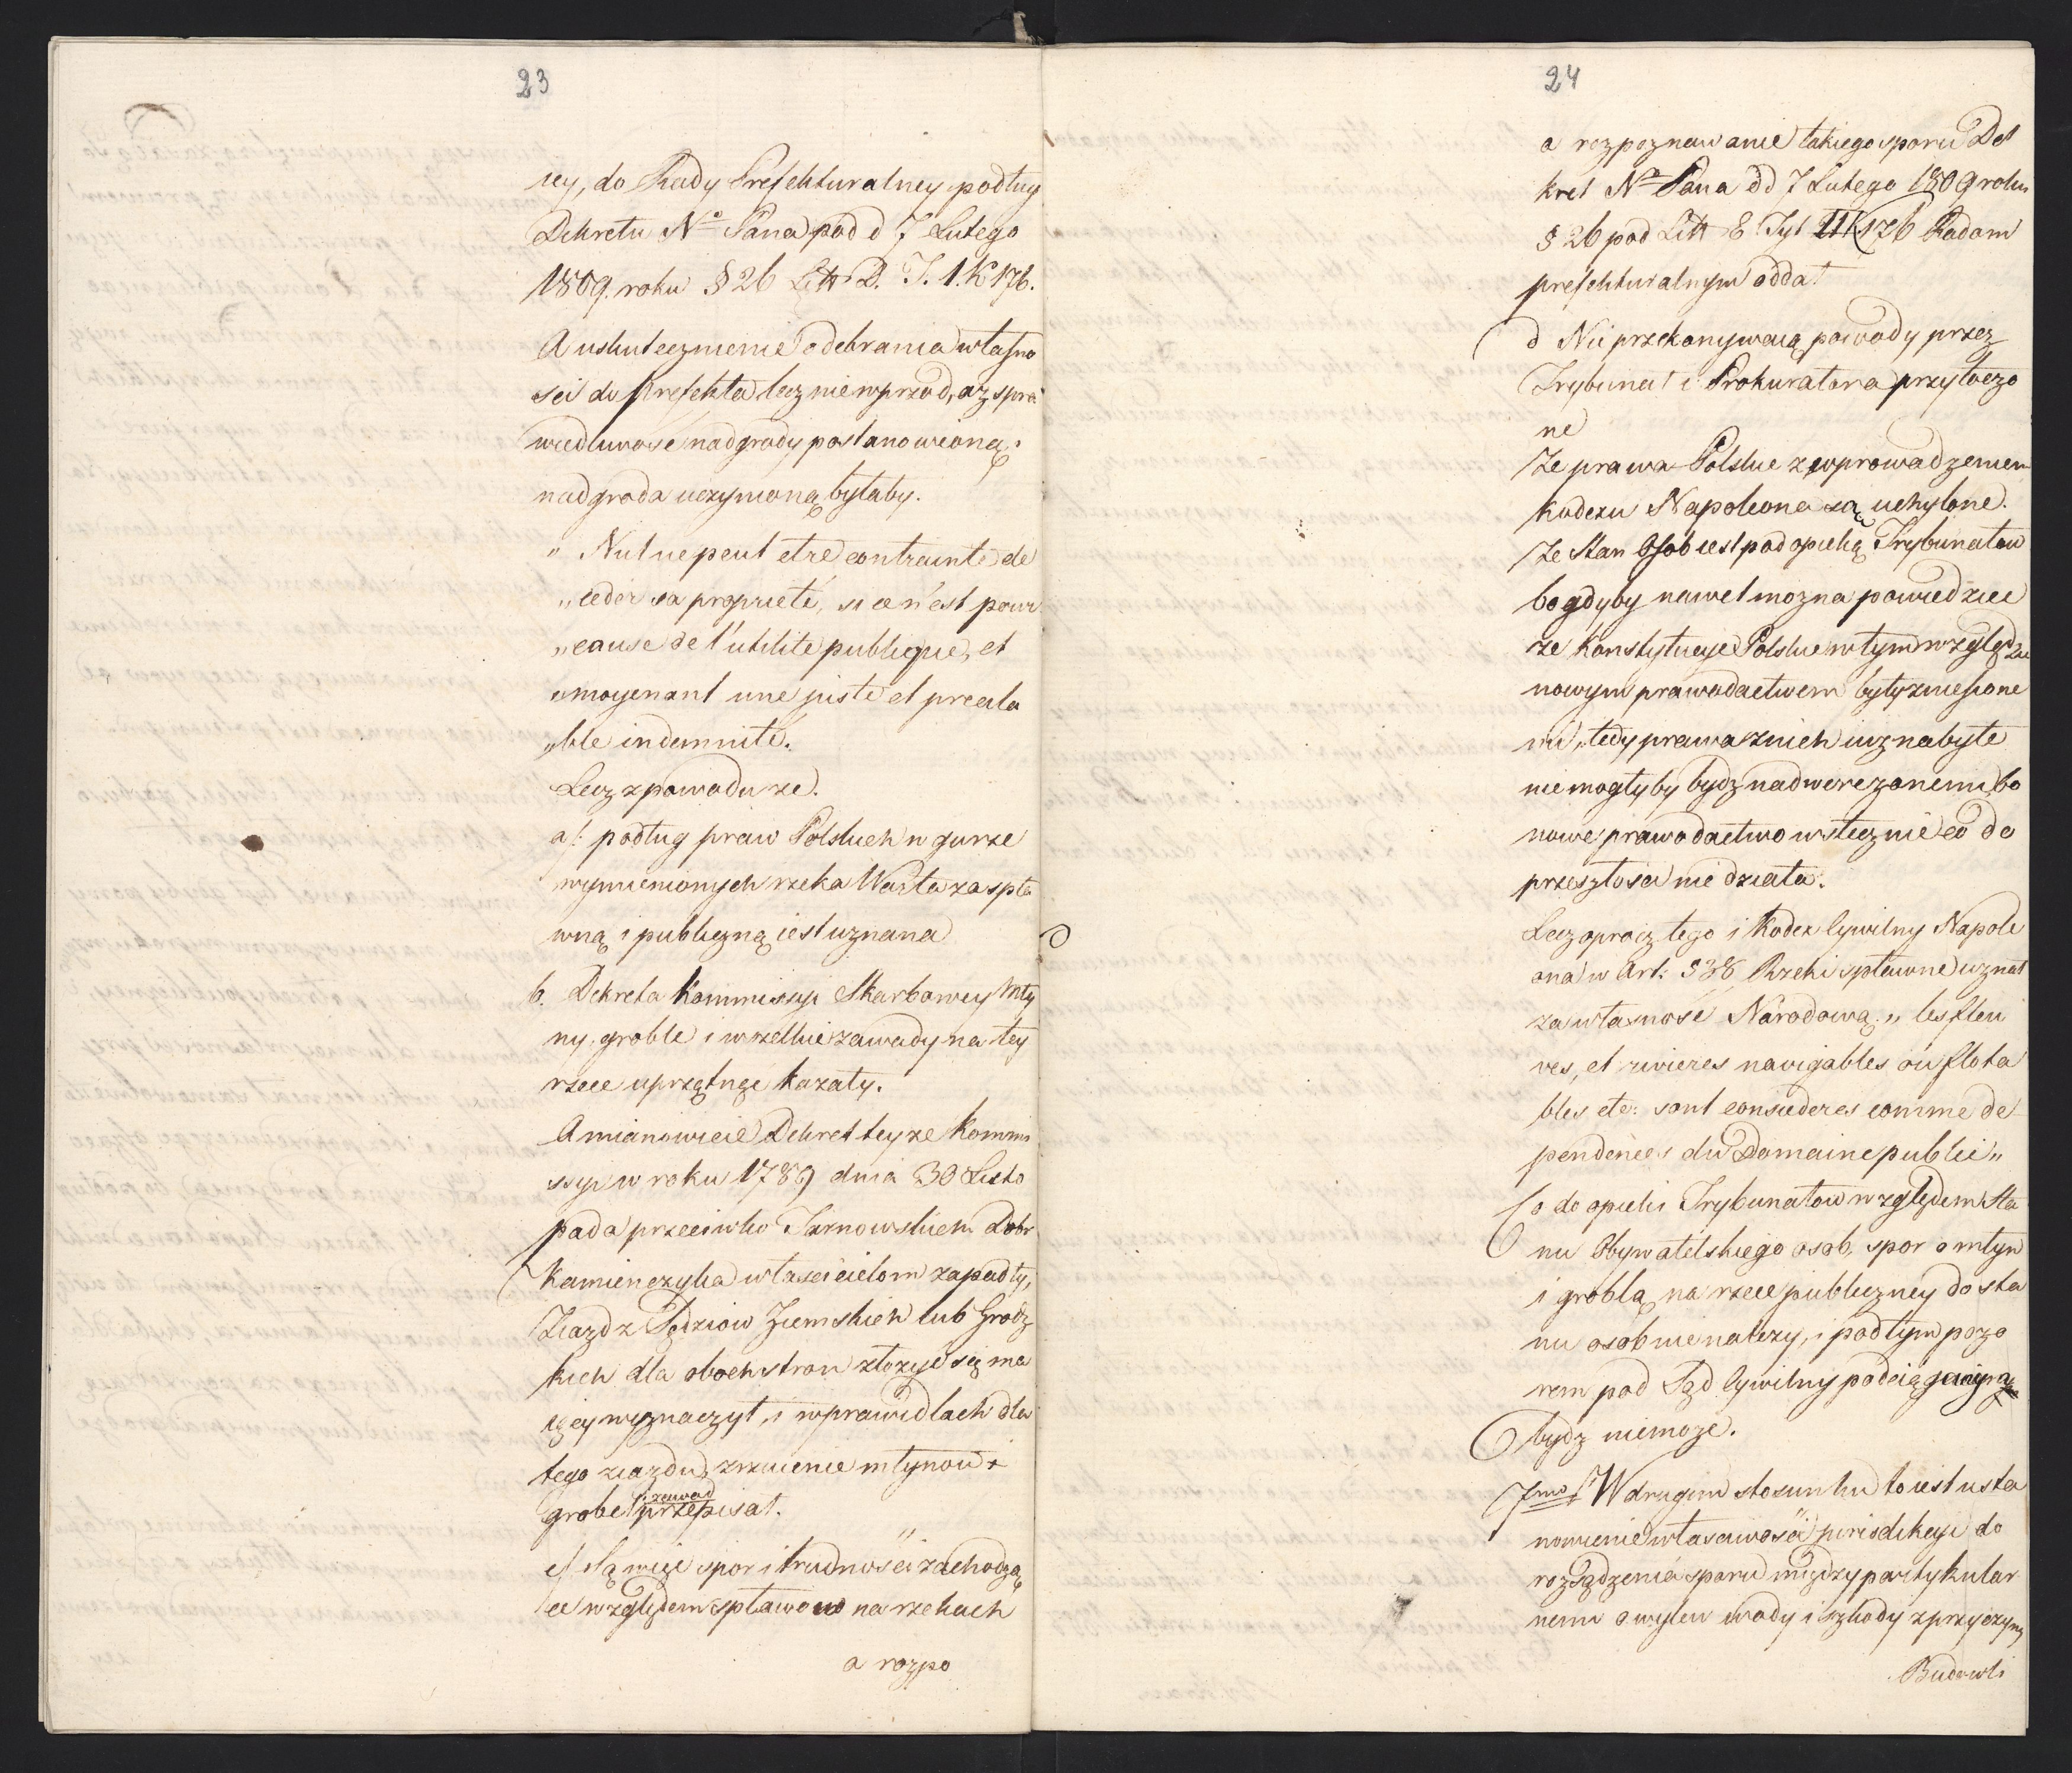 23
iey, do Rady Prefekturalney podług
Dekretu No Pana pod d 7 Lutego
1809. roku § 26 Litt D. T. 1. K 176.
A uskutecznienie odebrania własno
sci do Prefekta lecz nie wprzod, az spra
wiedliwosć nadgrody postanowioną i
nadgroda uczynioną byłaby.
" Nul ne peut etre contrainte de
„ ceder sa proprieté, si ce n'est pour
„ cause de l'utilite publique, et
„ moyenant une juste et preala
„ ble indemnité.
Lecz z powodu ze.
a/: podług praw Polskich w gurze
wymienionych rzeka Warta za spła
wną i publiczną iest uznana
b. Dekreta Kommissyi Skarbowey Mły
ny. groble i wszelkie zawady na tey
rzece uprzątnąc kazały.
A mianowicie Dekret teyze Kommi
ssyi w roku 1789 dnia 30 Listo
pada przeciwko Tarnowskich Dobr
Kamienczyka własicielom zapadły,
Ziazd z Sędziow Ziemskich lub Grodz
kich dla oboch stron złozyć się ma
iący wyznaczył, i w prawidlach dla
tego ziazdu, zrzucenie młynow i
i zawad
grobel przepisał.
c/ Są więc spor i trudności zachodzą
ce względem spławow na rzekach
a rozpo
24
a rozpoznawanie takiego sporu Dek
kret No Pana dd 7 Lutego 1809 roku
§ 26 pod Litt E Tyt II K 176 Radom
prefekturalnym oddał
d Nie przekonywaią powody przez
Trybunał i Prokuratora przytoczo
ne
Ze prawa Polskie z wprowadzeniem
kodexu Napoleona są uchylone.
Ze Stan Osob iest pod opieką Trybunałow
bo gdyby nawet mozna powiedziec
ze Konstytucye Polskie w tym względzie
nowym prawodactwem były zniesione
mi, tedy prawa z nich iuz nabyte
nie mogłyby bydz nadwerezonemi bo
nowe prawodactwo wstecznie co do
przeszłosci nie działa.
Lecz oprocz tego i Kodex Cywilny Napole
ona w Art: 538 Rzeki spławne uznał
za własność Narodową. „ les fleu
ves, et rivieres navigables ou flota
bles etc: sont consideres comme de
pendences du Domaine public „
Co do opieki Trybunałow względem Sta
nu Obywatelskiego osob, spor o młyn
i groblą na rzece publiczney do sta
nu osob nienalezy, i pod tym pozo
rem pod Sąd Cywilny podciągan
bydz niemoze.
7mo W drugim stosunku to iest usta
nowienie własciwości jurisdikcyi do
rozsądzenia sporu między partykular
nemi o wylew wody i szkody z przyczyny
Budowli